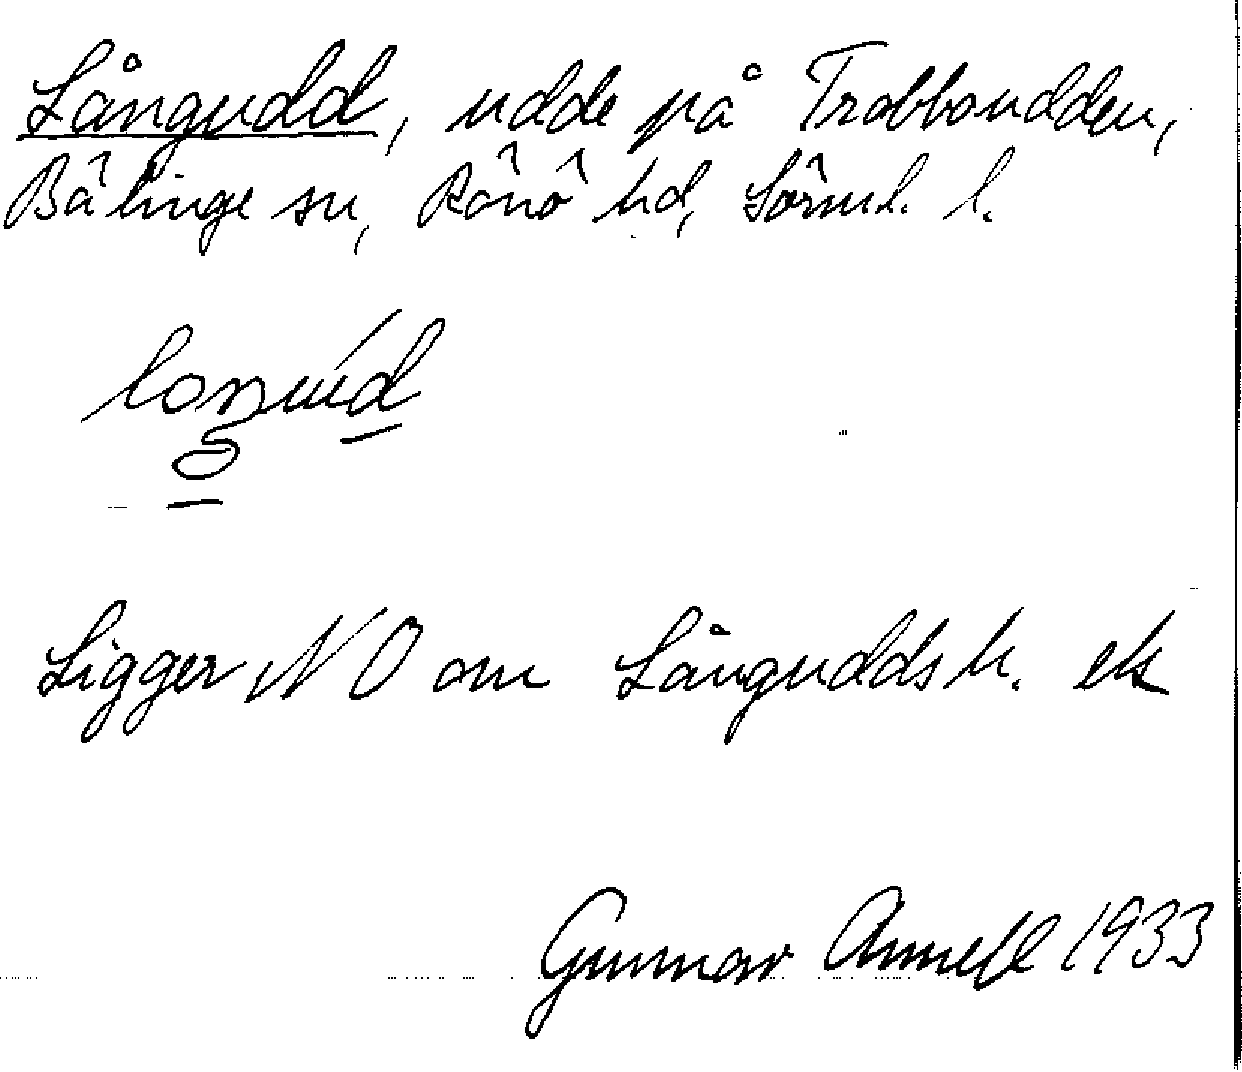 Långudd, udde på Trobboudden,
Bälinge sn, Rönö hd, Sörml. l.
Ligger NO om Långudds h. ek
Gunnar Annell 1933